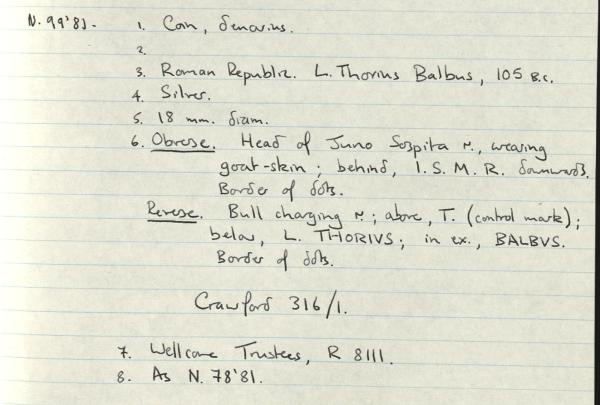 N. 99'81. 1. Coin, denarius.
2.
3. Roman Republic. L. Thorius Balbus, 105 B.C.
4. Silver.
5. 18 mm. diam.
6. Obverse. Head of Juno Sospita r., wearing
goat-skin; behind, I.S.M.R. downwards.
Border of dots.
Reverse. Bull charging r.; above, T. (control mark);
below, L. THORIVS; in ex., BALBVS.
Border of dots.
Crawford 316/1.
7. Wellcome Trustees, R 8111.
8. As N. 78'81.